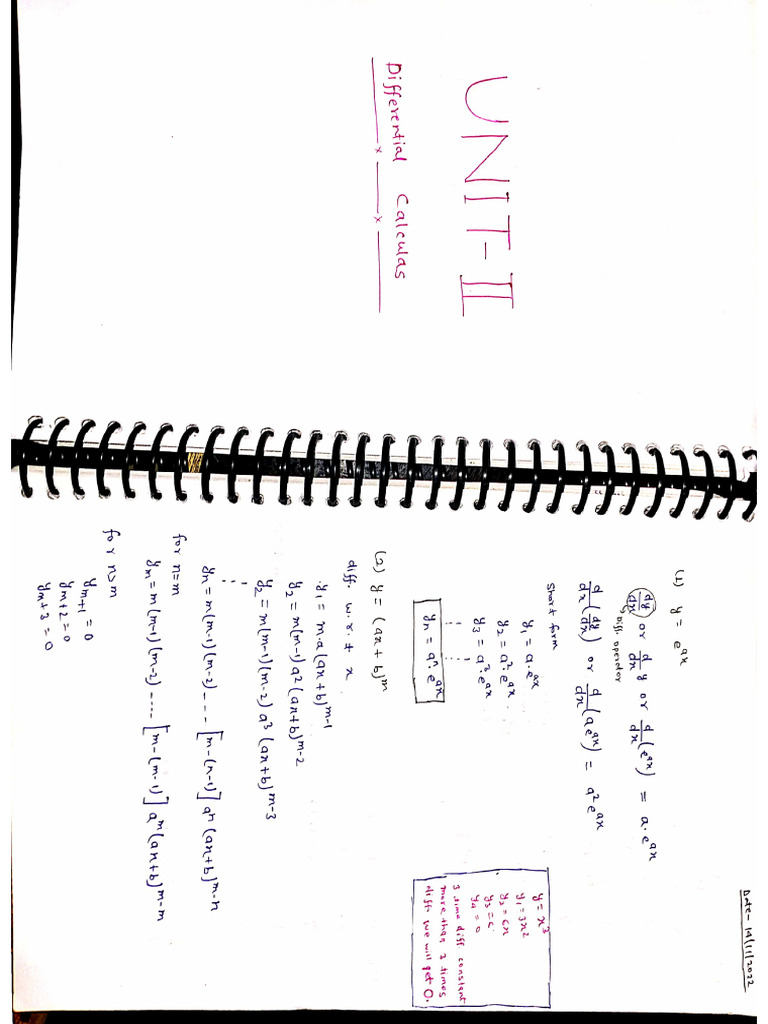 UNIT-II
Differential Calculas
Date- 14/11/2022
(1) y = e^ax
dy/dx or d/dx y or d/dx (e^ax) = a.e^ax
Diff. operator
d/dx (dy/dx) or d/dx (a e^ax) = a² e^ax
Short form
y₁ = a.e^ax
y₂ = a².e^ax
y₃ = a³.e^ax
yₙ = aⁿ.e^ax
y = x³
y₁ = 3x²
y₂ = 6x
y₃ = 6.
y₄ = 0
3 time diff constant
more than 3 times
diff. we will get 0.
(2) y = (ax + b)^m
diff. w.r.t x
y₁ = m.a (ax+b)^m-1
y₂ = m(m-1) a² (ax+b)^m-2
y₂ = m(m-1)(m-2) a³ (ax+b)^m-3
yn = m(m-1)(m-2) ---- [m-(n-1)] aⁿ (ax+b)^m-n
for n=m
ym = m(m-1)(m-2) ---- [m-(m-1)] a^m (ax+b)^m-m
for n>m
ym+1 = 0
ym+2 = 0
ym+3 = 0